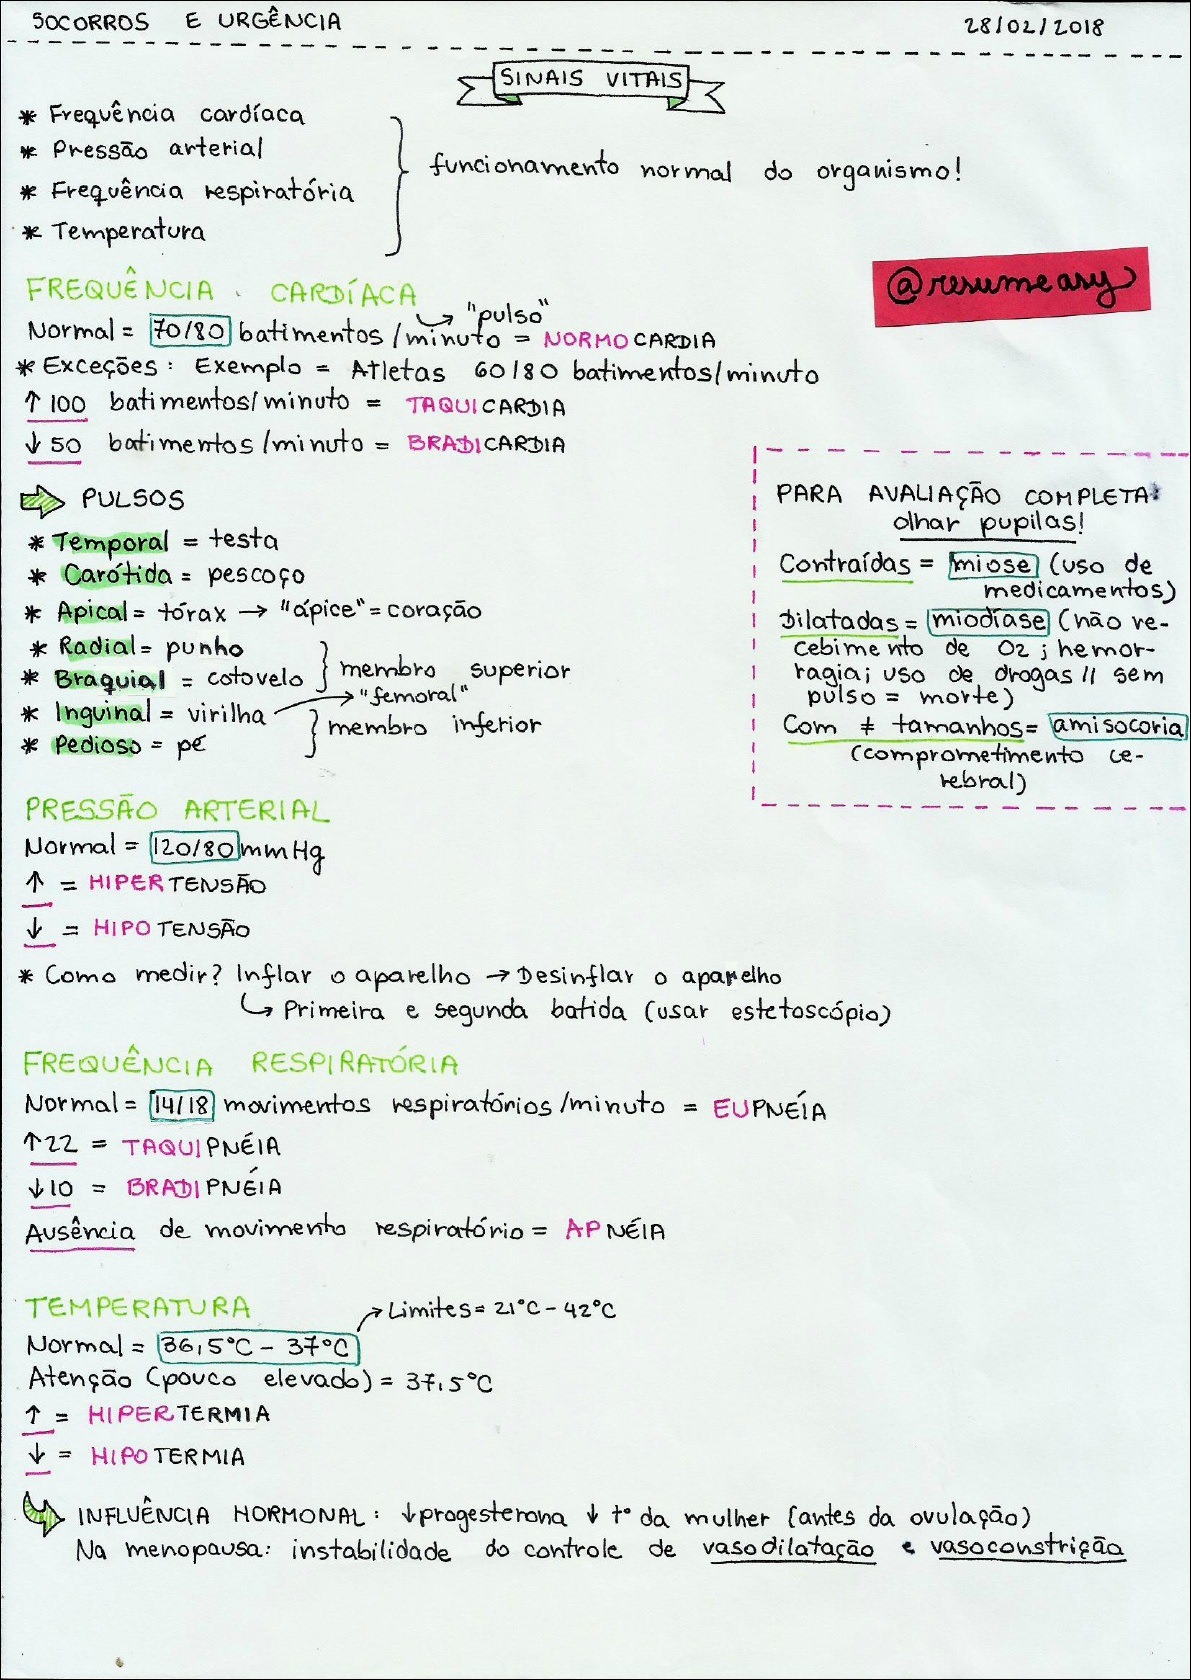 SOCORROS E URGÊNCIA
28/02/2018
SINAIS VITAIS
* Frequência cardíaca
* Pressão arterial
* Frequência respiratória
* Temperatura
funcionamento normal do organismo!
@resumeasy
FREQUÊNCIA CARDÍACA
↳ "pulso"
Normal = 70/80 batimentos/minuto = NORMOCARDIA
* Exceções: Exemplo = Atletas 60/80 batimentos/minuto
↑ 100 batimentos/minuto = TAQUICARDIA
↓ 50 batimentos/minuto = BRADICARDIA
⇒ PULSOS
* Temporal = testa
* Carótida = pescoço
* Apical = tórax → "ápice" = coração
* Radial = punho
* Braquial = cotovelo
membro superior
* Inguinal = virilha → "femoral"
* Pedioso = pé
membro inferior
PARA AVALIAÇÃO COMPLETA:
olhar pupilas!
Contraídas = miose (uso de
medicamentos)
Dilatadas = miodíase (não re-
cebimento de O2; hemor-
ragia; uso de drogas // sem
pulso = morte)
Com ≠ tamanhos = amisocoria
(comprometimento ce-
rebral)
PRESSÃO ARTERIAL
Normal = 120/80 mmHg
↑ = HIPERTENSÃO
↓ = HIPOTENSÃO
* Como medir? Inflar o aparelho → Desinflar o aparelho
↳ Primeira e segunda batida (usar estetoscópio)
FREQUÊNCIA RESPIRATÓRIA
Normal = 14/18 movimentos respiratórios/minuto = EUPNÉIA
↑22 = TAQUIPNÉIA
↓10 = BRADIPNÉIA
Ausência de movimento respiratório = APNÉIA
TEMPERATURA
→ Limites = 21°C - 42°C
Normal = 36,5°C - 37°C
Atenção (pouco elevado) = 37,5°C
↑ = HIPERTERMIA
↓ = HIPOTERMIA
↳ INFLUÊNCIA HORMONAL: ↓progesterona ↓ t° da mulher (antes da ovulação)
Na menopausa: instabilidade do controle de vasodilatação e vasoconstrição